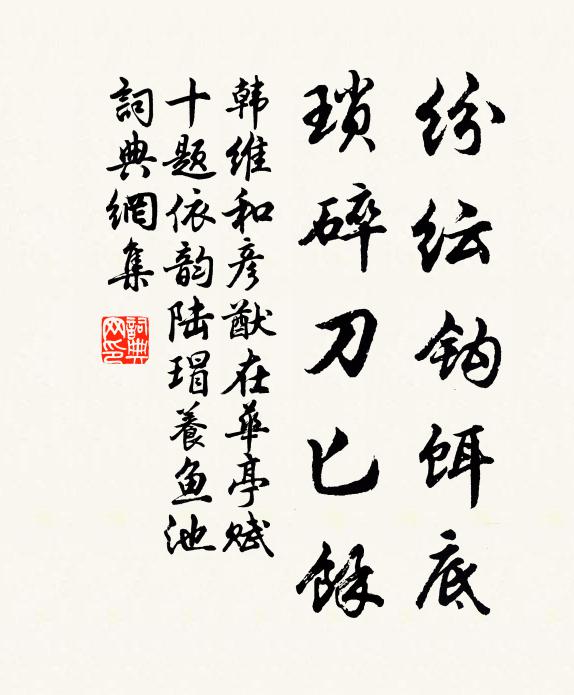 纷纭钩饵底
琐碎刀匕馀
韩维和彦猷在华亭赋
十题依韵陆瑁养鱼池
词典网集
詞典网印